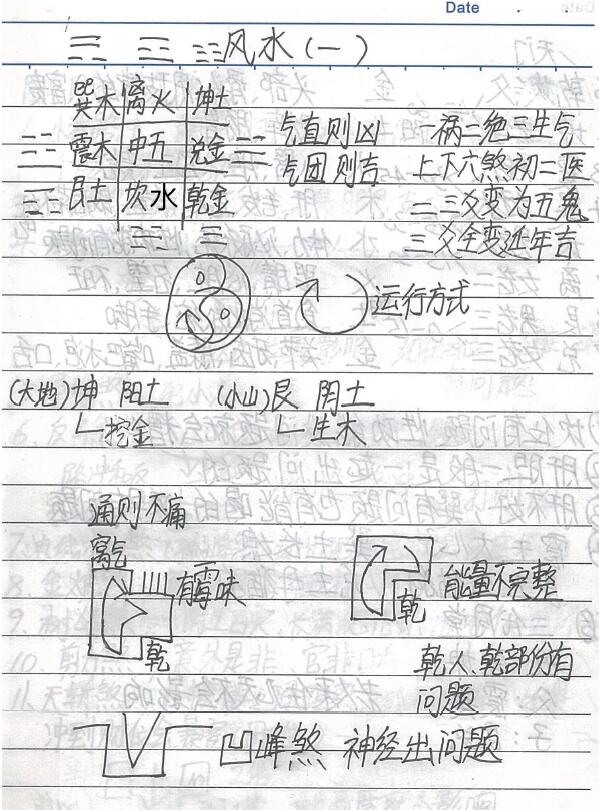 Date
☰ ☲ ☷ 风水(一)
巽木 离火 坤土
震木 中五 兑金
艮土 坎水 乾金
气直则凶 一祸二绝三生气
气团则吉 上下六煞初二医
二三爻变为五鬼
三爻全变延年吉
运行方式
(大地)坤 阳土 (小山)艮 阴土
挖金 生木
通则不痛
窝气
有霉味
乾
能量不完整
乾
乾人、乾部份有
问题
凹峰煞 神经出问题